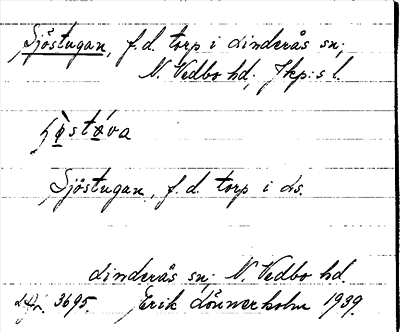 Sjöstugan, f.d. torp i Linderås sn;
N. Vedbo hd; Jkp:s l.
Sjöstugan, f.d. torp i Ls.
Linderås sn; N. Vedbo hd.
3695. Erik Lönnerholm 1939.